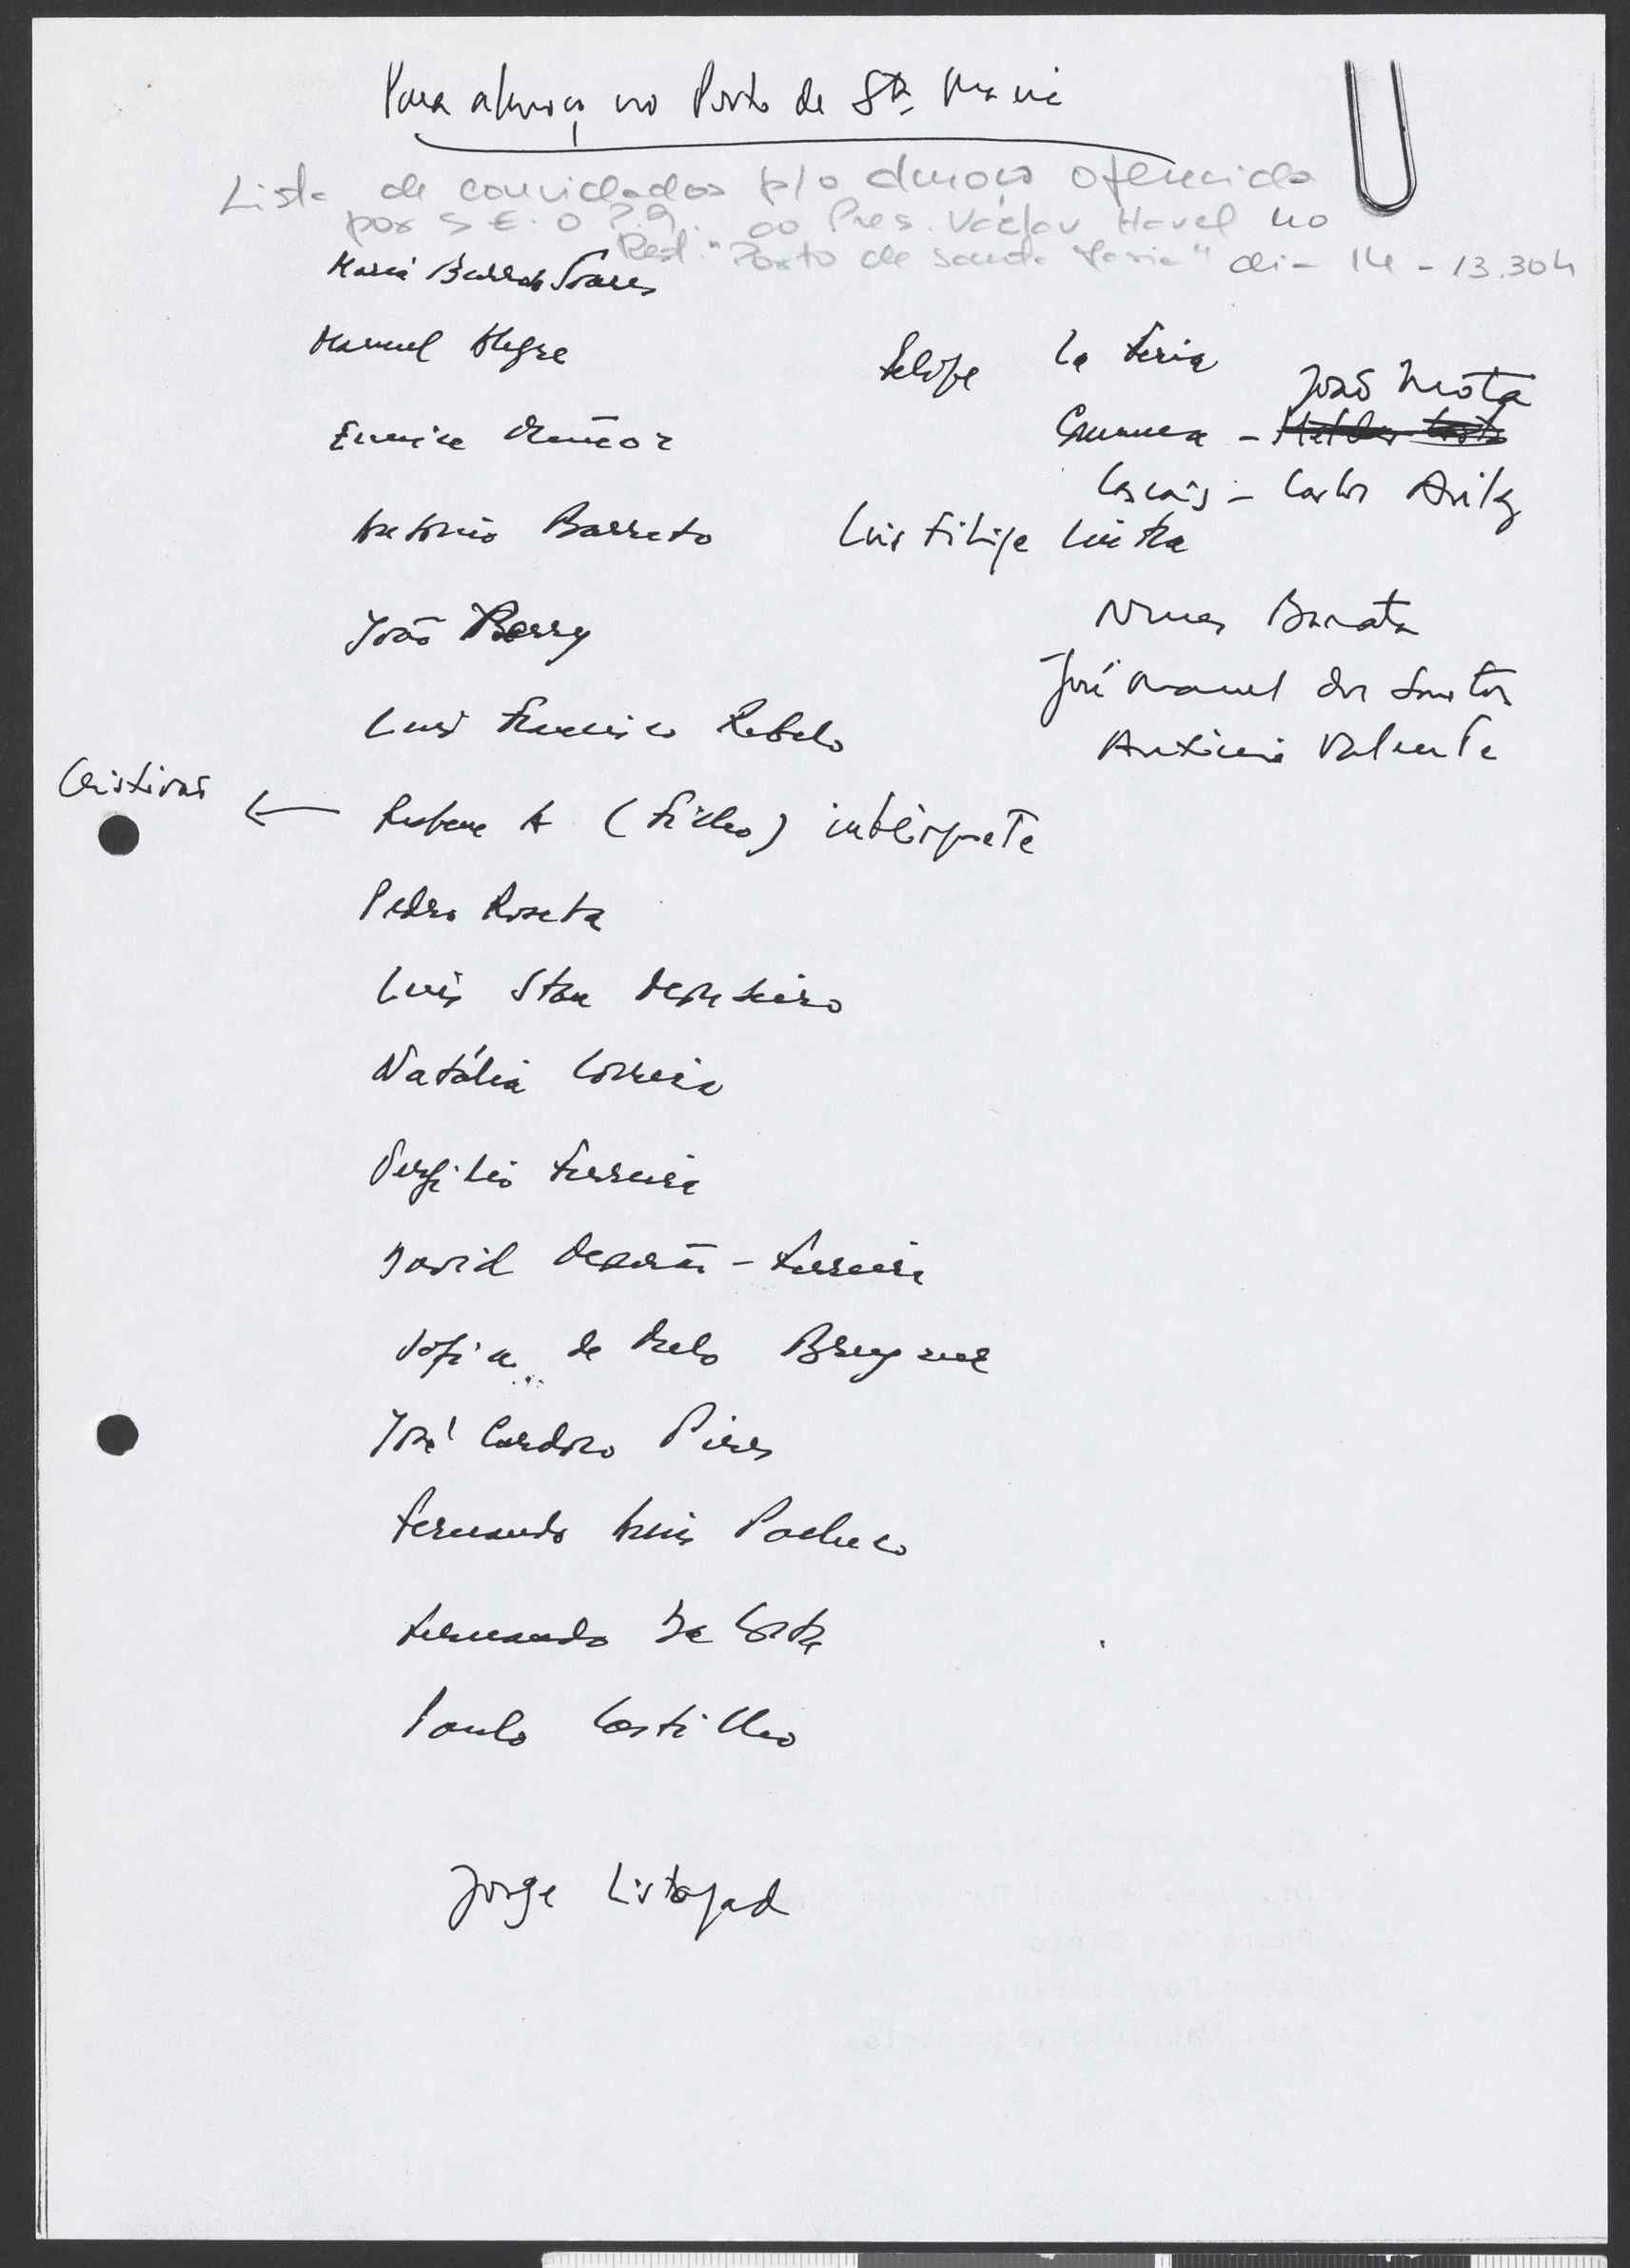 Para almoço no Porto de Sta Maria
Lista de convidados p/o almoço oferecido
por S.E. o P.R. ao Pres. Václav Havel no
Rest. "Porto de Santa Maria" dia 14 - 13.30h
Maria Barroso Soares
Manuel Alegre
Eunice Muñoz
António Barreto
João Perry
Luís Francisco Rebelo
Cristovas ← Ruben A (Filho) intérprete
Pedro Roseta
Luís Stau Monteiro
Natália Correia
Vergílio Ferreira
David Mourão-Ferreira
Sofia de Melo Breyner
José Cardoso Pires
Fernando Assis Pacheco
Fernando Da Costa
Paulo Castilho
Jorge Listopad
Felipe La Féria
João Mota
Comuna -
Cascais - Carlos Avilez
Luis Filipe Cintra
Nunes Barata
José Manuel dos Santos
António Valente